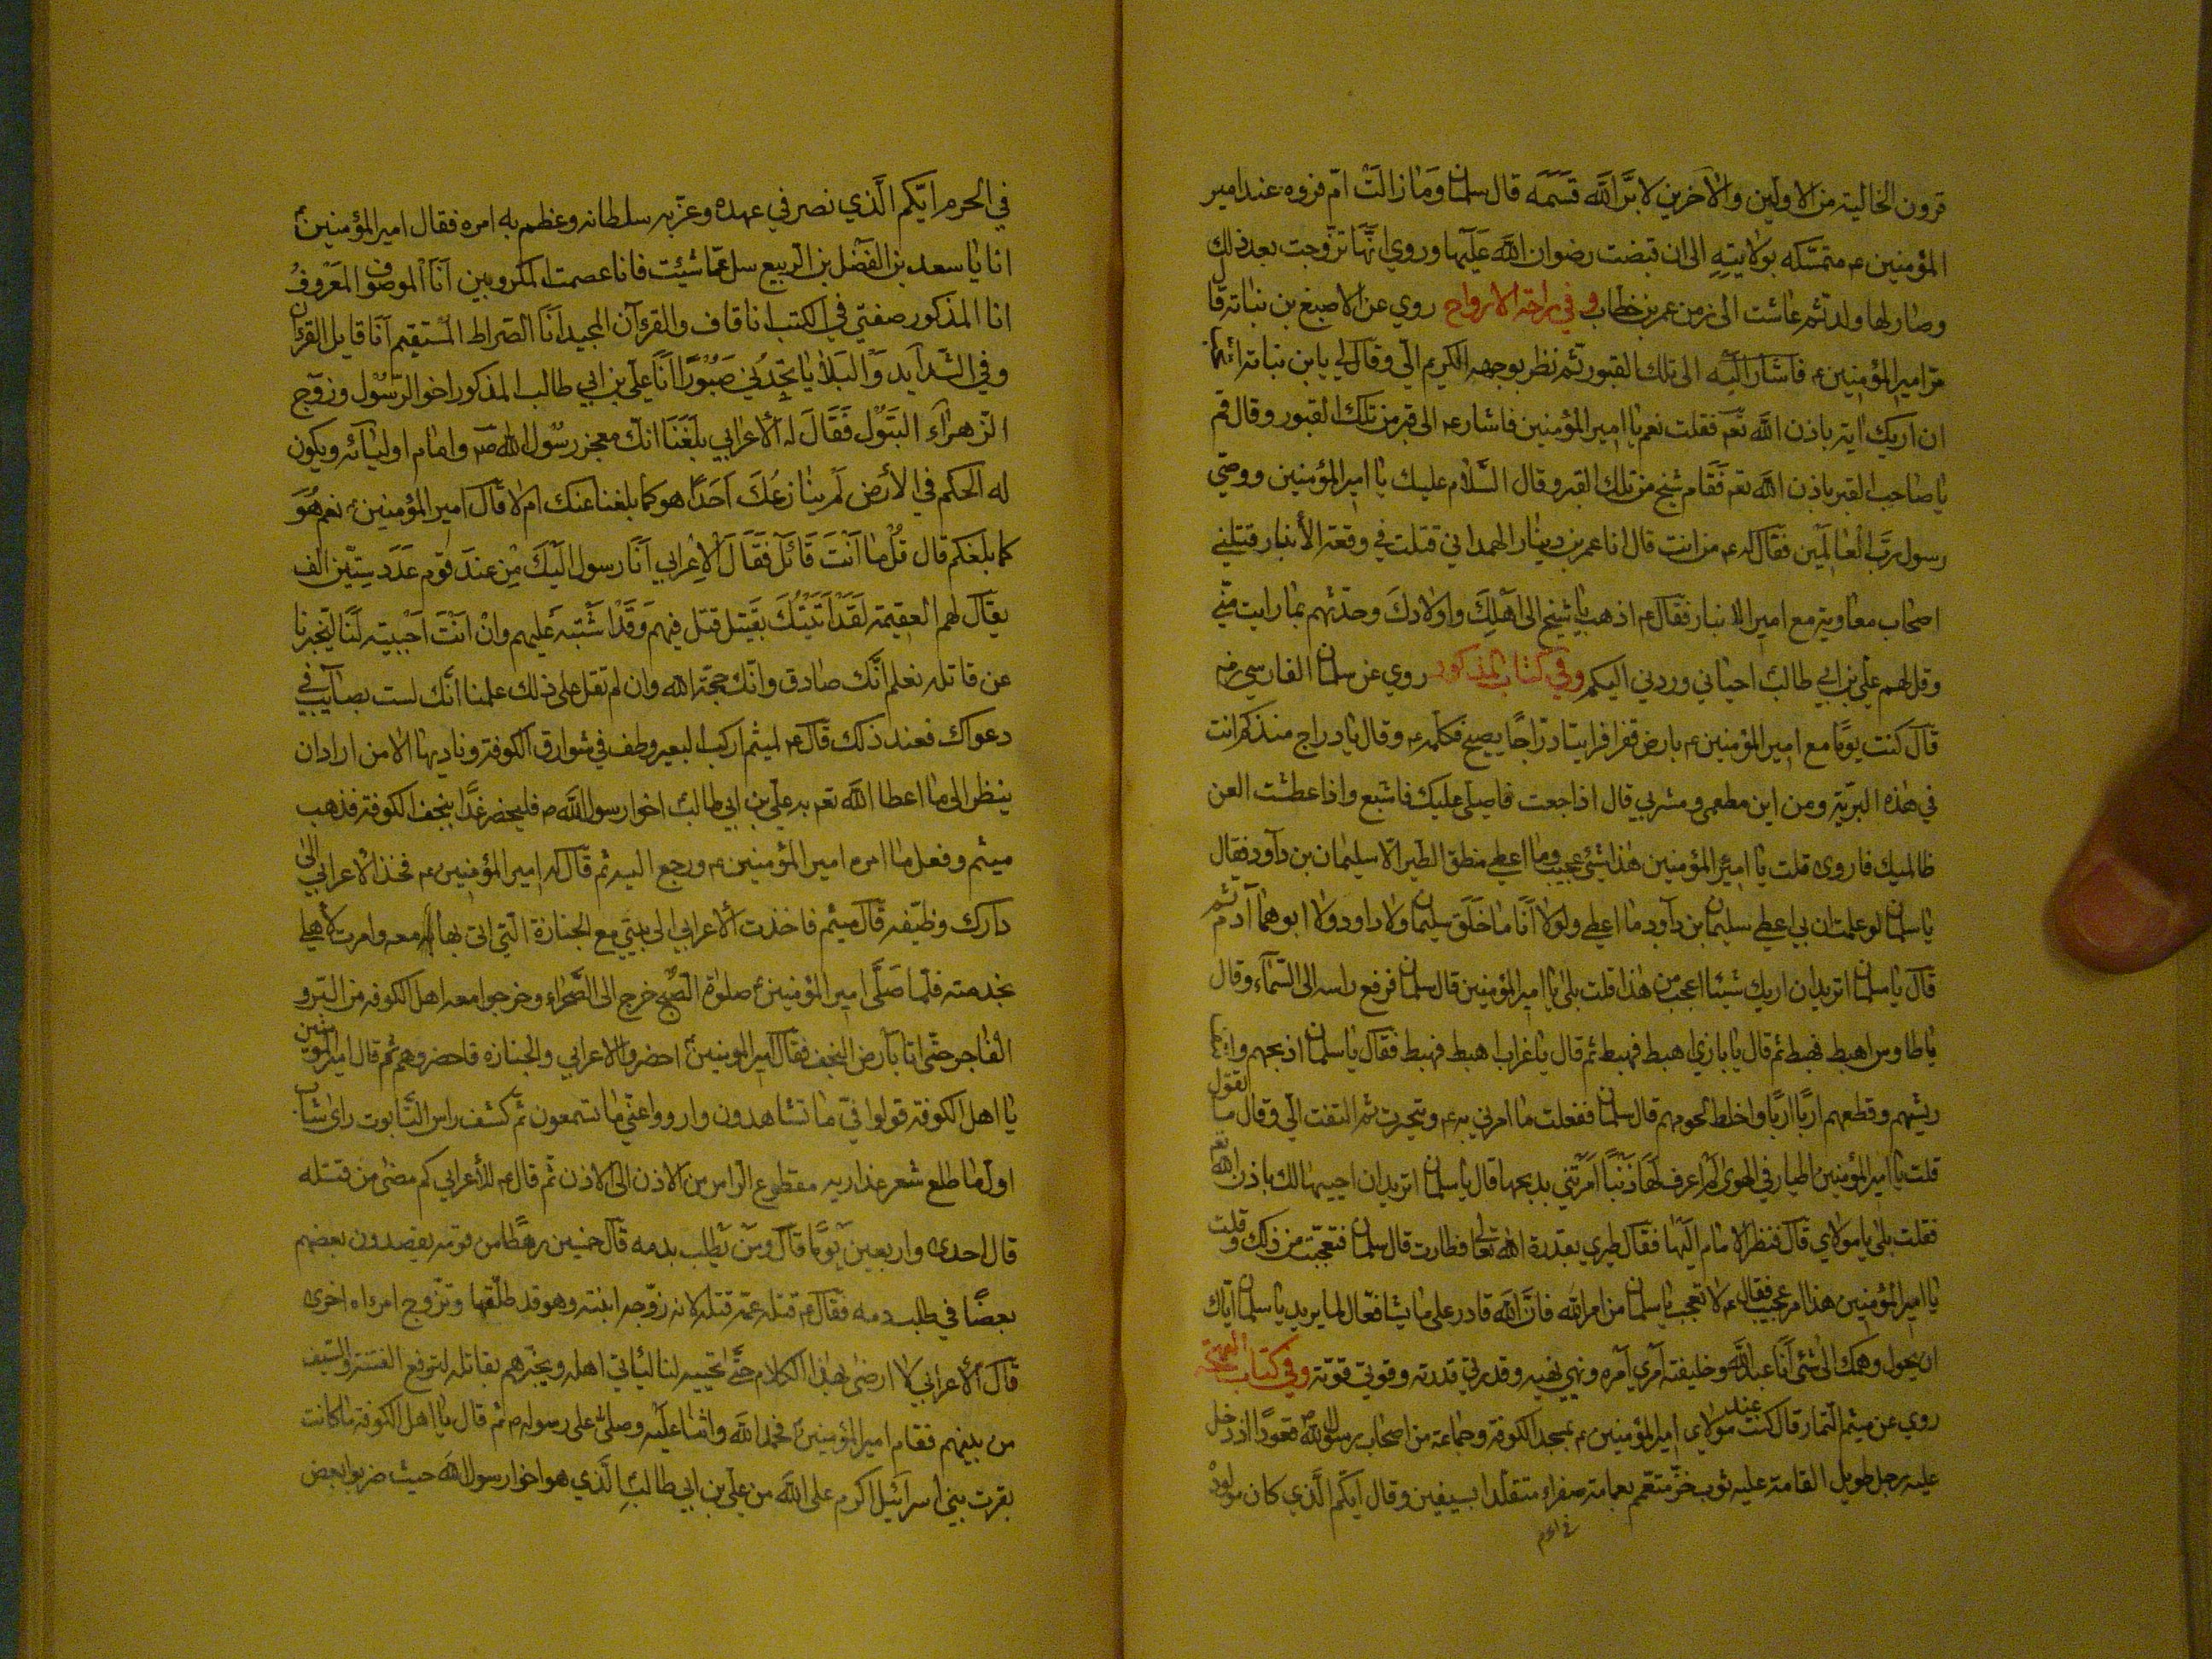 قرون الخالية من الاولين والآخرين لابرّ الله قسمه قال سلمان وما زالت امّ فروه عند امير
المؤمنين ع متمسّكه بولايته الى ان قبضت رضوان الله عليها وروي انّها تزوّجت بعد ذلك
وصار لها ولد ثم عاشت الى زمن عمر بن خطاب وفي راحة الارواح روي عن الاصبغ بن نباته قا
مرّ امير المؤمنين ع فاشار اليه الى تلك القبور ثم نظر بوجهه الكريم اليّ وقال لي يابن نباته
ان اريك اية باذن الله تعم فقلت نعم يا امير المؤمنين فاشار ع الى قبر من تلك القبور وقال قم
يا صاحب القبر باذن الله تعم فقام شيخ من تلك القبر وقال السّلام عليك يا امير المؤمنين ووصّي
رسول ربّ العالمين فقال له ع من انت قال انا عمر بن دينار الهمداني قتلت في وقعة الأنبار قتلني
اصحاب معاوية مع امير الانبار فقال ع اذهب يا شيخ الى اهلك واولادك وحدّثهم بما رايت منّي
وقل لهم علي بن ابي طالب احياني وردني اليكم وفي كتاب المذكور روي عن سلمان الفارسي رض
قال كنت يوما مع امير المؤمنين ع بارض قفرا فرايتا درّاجًا يصيح فكلمه ع وقال يا دراج منذ كم انت
في هذه البريّة ومن اين مطعمي ومشربي قال اذا جعت فاصلّى عليك فاشبع واذا عطشت العن
ظالميك فاروى قلت يا امير المؤمنين هذا شئ عجيب وما اعطي منطق الطّير الا سليمان بن دآود فقال
يا سلمان لو علمت ان بي اعطي سليمان بن دآود ما اعطي ولولا انا ما خلق سليمان ولا داود ولا ابوهما آدم ثم
قال يا سلمان اتريد ان اريك شيئا اعجب من هذا قلت بلى يا امير المؤمنين قال سلمان فرفع راسه الى السّماء وقال
يا طاوس اهبط فهبط ثم قال يا بازي اهبط فهبط ثم قال يا غراب اهبط فهبط فقال يا سلمان اذبحهم
ريشهم وقطعهم اربًا اربًا واخلط لحومهم قال سلمان ففعلت ما امرني به ع وتحيرت ثم التفت اليّ وقال ما تقول
قلت يا امير المؤمنين اطيار في الهوى لم اعرف لها ذنبًا امرتني بذبحها قال يا سلمان اتريد ان احييها لك باذن الله تعم
فقلت بلى يا مولاي قال فنظر الامام اليها فقال طيري بقدرة الله تعالى فطارت قال سلمان فتعجبت من ذلك وقلت
يا امير المؤمنين هذا امر عجيب فقال ع لا تعجب يا سلمان من امر الله فانّ الله قادر على ما يشا فعّال لما يريد يا سلمان ايّاك
ان يحول وهمك الى شئ انا عبد الله وخليفته امري امره ونهيي نهيه وقدرتي قدرته وقوتي قوّته وفي كتاب
روي عن ميثم التمار قال كنت عند مولاي امير المؤمنين ع بمسجد الكوفة وجماعة من اصحاب رسول الله ص قعودًا اذ دخل
عليه رجل طويل القامة عليه ثوب خزّ متعمّم بعمامة صفراء متقلّدا بسيفين وقال ايّكم الّذي كان مولود
في الحرم
في الحرم ايّكم الّذي نصر في عهده وعزّ به سلطانه وعظم به امره فقال امير المؤمنين ع
انا يا سعد بن الفضل بن الربيع سل عمّا شئت فانا عصمت المكروبين انا الموصوف المعروف
انا المذكور صفتي في الكتب انا قاف والقرآن المجيد انا الصراط المستقيم انا قايل القرآن
وفي الشّدايد والبلايا تجدني صبورًا انا علي بن ابي طالب المذكور اخو الرّسول وزوّج
الزّهراء البتول فقال له الأعرابي بلغنا انك معجز رسول الله ص وامام اوليائه ويكون
له الحكم في الأرض لم ينازعك احدًا هو كما بلغنا عنك ام لا قال امير المؤمنين ع نعم هو
كما بلغكم قال قل ما انت قائل فقال الاعرابي انا رسول اليك من عند قوم عدد ستّين الف
يقال لهم العقيمة لقد اتيتك بقتيل قتل فيهم وقد اشتبه عليهم وان انت احييته لنا ليخبرنا
عن قاتله نعلم انّك صادق وانّك حجّة الله وان لم تقل على ذلك علمنا انّك لست بصايب في
دعواك فعند ذلك قال ع لميثم اركب البعير وطف في شوارق الكوفة وناديها الا من اراد ان
ينظر الى ما اعطا الله تعم به علي بن ابي طالب اخوا رسول الله ص فليحضر غدًا بنجف الكوفة فذهب
ميثم وفعل ما امره امير المؤمنين ع ورجع اليه ثم قال له امير المؤمنين ع فخذ الأعرابي الى
دارك وظيّفه قال ميثم فاخذت الأعرابي الى بيتي مع الجنازة الّتي اتى بها معه وامرت لأهلي
بخدمته فلمّا صلّى امير المؤمنين ع صلوة الصّبح خرج الى الصّحراء وخرجوا معه اهل الكوفه من البرّ و
الفاجر حتّى اتا بارض النجف فقال امير المومنين ع احضروا الاعرابي والجنازه فاحضروهم ثم قال امير المؤمنين
يا اهل الكوفة قولوا فيّ ما تشاهدون وارووا عنّي ما تسمعون ثمّ كشف راس التّابوت راى شاب
اول ما طلع شعر عذاريه مقطوع الراس من الاذن الى الاذن ثم قال ع للأعرابي كم مضى من قتله
قال احدى واربعين يومًا قال ومن يطلب بدمه قال خمسين رهطًا من قومه يقصدون بعضهم
بعضًا في طلب دمه فقال ع قتله عمّه قتله لانه زوّجه ابنته وهو قد طلّقها وتزّوج امراه اخرى
قال الأعرابي لا ارضى بهذا الكلام حتّى تحييه لنا ليأتي اهله ويخبّرهم بقاتله لترفع الفتنة والسّيف
من بينهم فقام امير المؤمنين ع فحمد الله واثنا عليه وصلّى على رسوله ص ثم قال يا اهل الكوفة ما كانت
بقرت بني اسرائيل اكرم على الله من علي بن ابي طالب الّذي هو اخوا رسول الله حيث ضربوا بعض